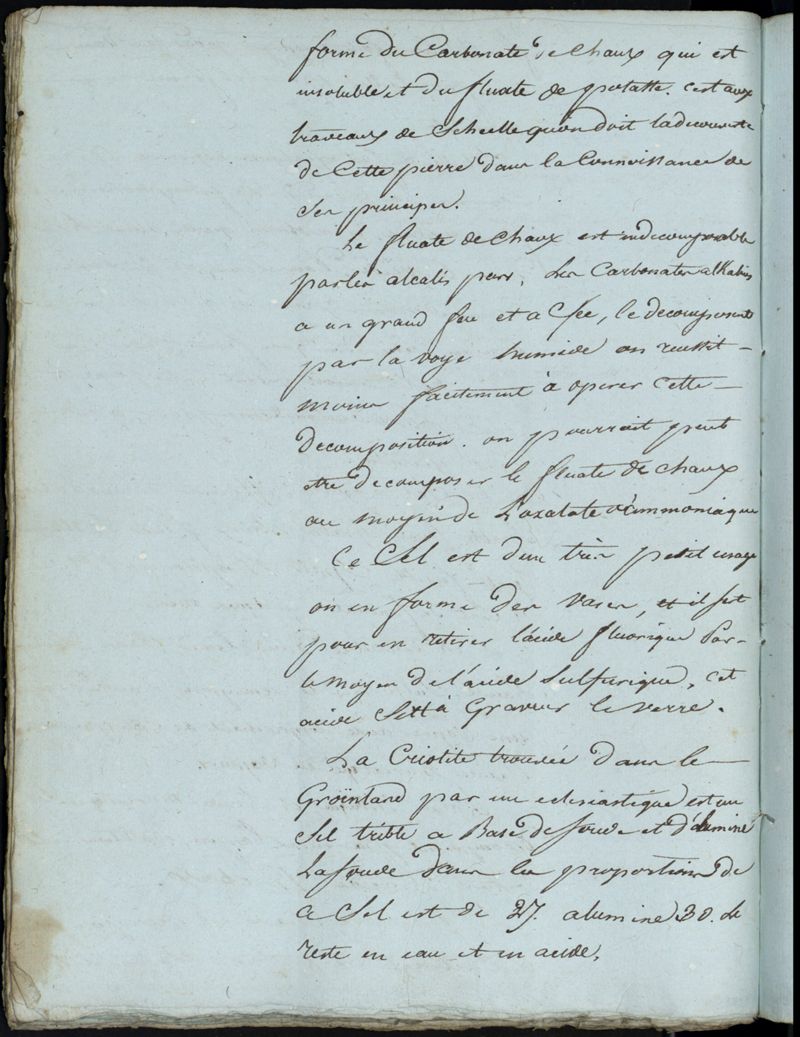 forme du Carbonate de Chaux qui est
insoluble et du fluate de potasse. c'est aux
travaux de Scheelle qu'on doit la decouverte
de Cette pierre dans la Connoissance de
Ses principes.
Le fluate de Chaux est indecomposable
par les alcalis purs, Les Carbonates alkalins
a un grand feu et a Sec, le decomposent
par la voye humide on reussit -
moins facilement à operer Cette -
decomposition. on pourrait peut
etre decomposer le fluate de Chaux
au moyen de L'oxalate d'ammoniaque
Ce Sel est d'un très petit usage
on en forme des Vases, et il sert
pour en retirer l'acide fluorique Par -
le moyen de l'acide Sulfurique, cet
acide Sert à Graver le verre.
La Criolite trouvée dans le -
Groïnland par un eclesiastique est un
Sel trible a Base de soude et d'alumine
La soude dans les proportions de
Ce Sel est de 27. alumine 30. le
reste en eau et en acide.